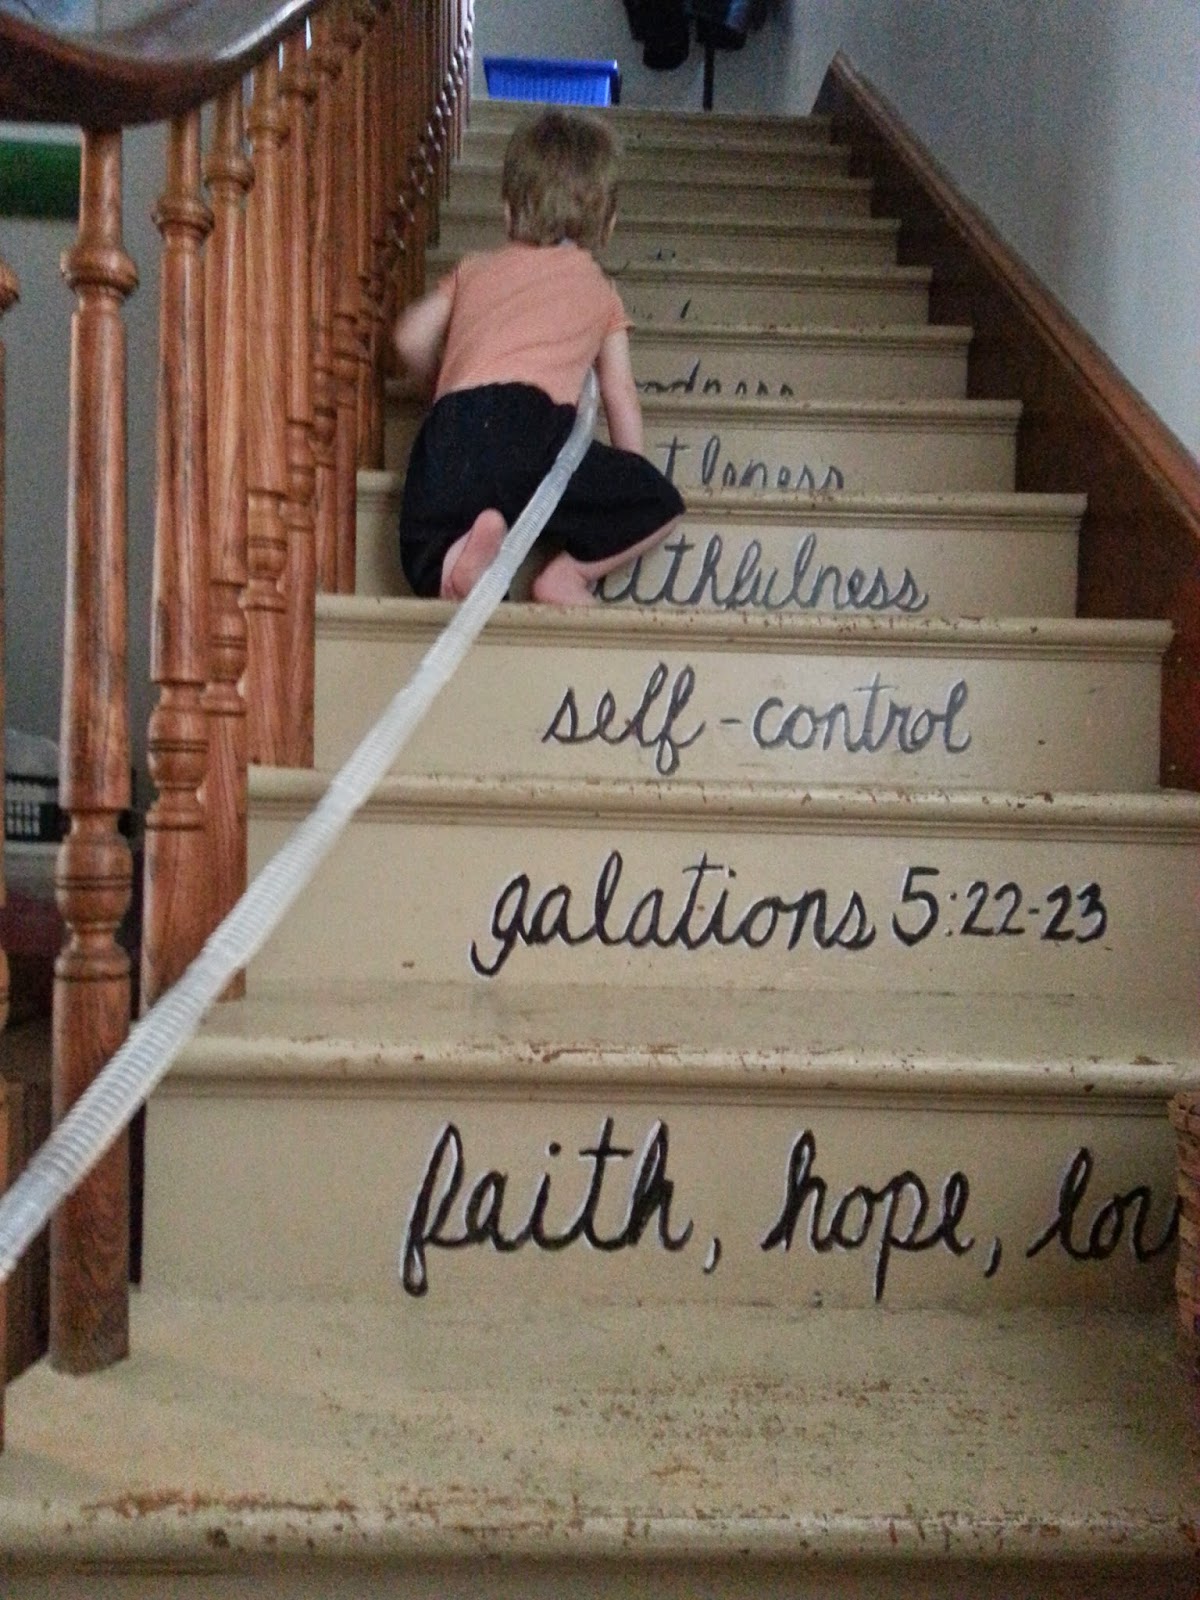 tleness
ithfulness
self-control
galations 5:22-23
faith, hope, lov